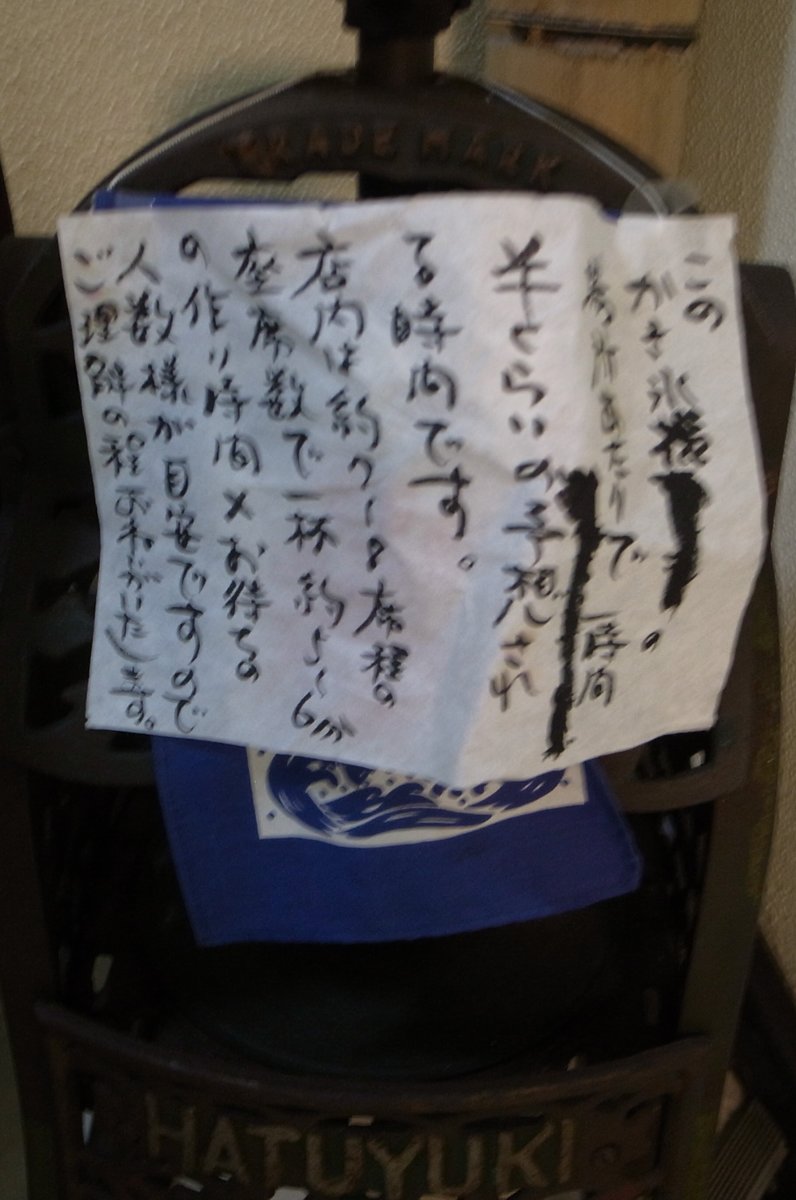 TRADE MARK
この
かき氷機
あたりで 一時間
半くらいの予想され
る時間です。
店内は約7~8席程の
座席数で一杯約5~6分
の作り時間×お待ちの
人数様が目安ですので
ご理解の程お願いします。
HATUYUKI